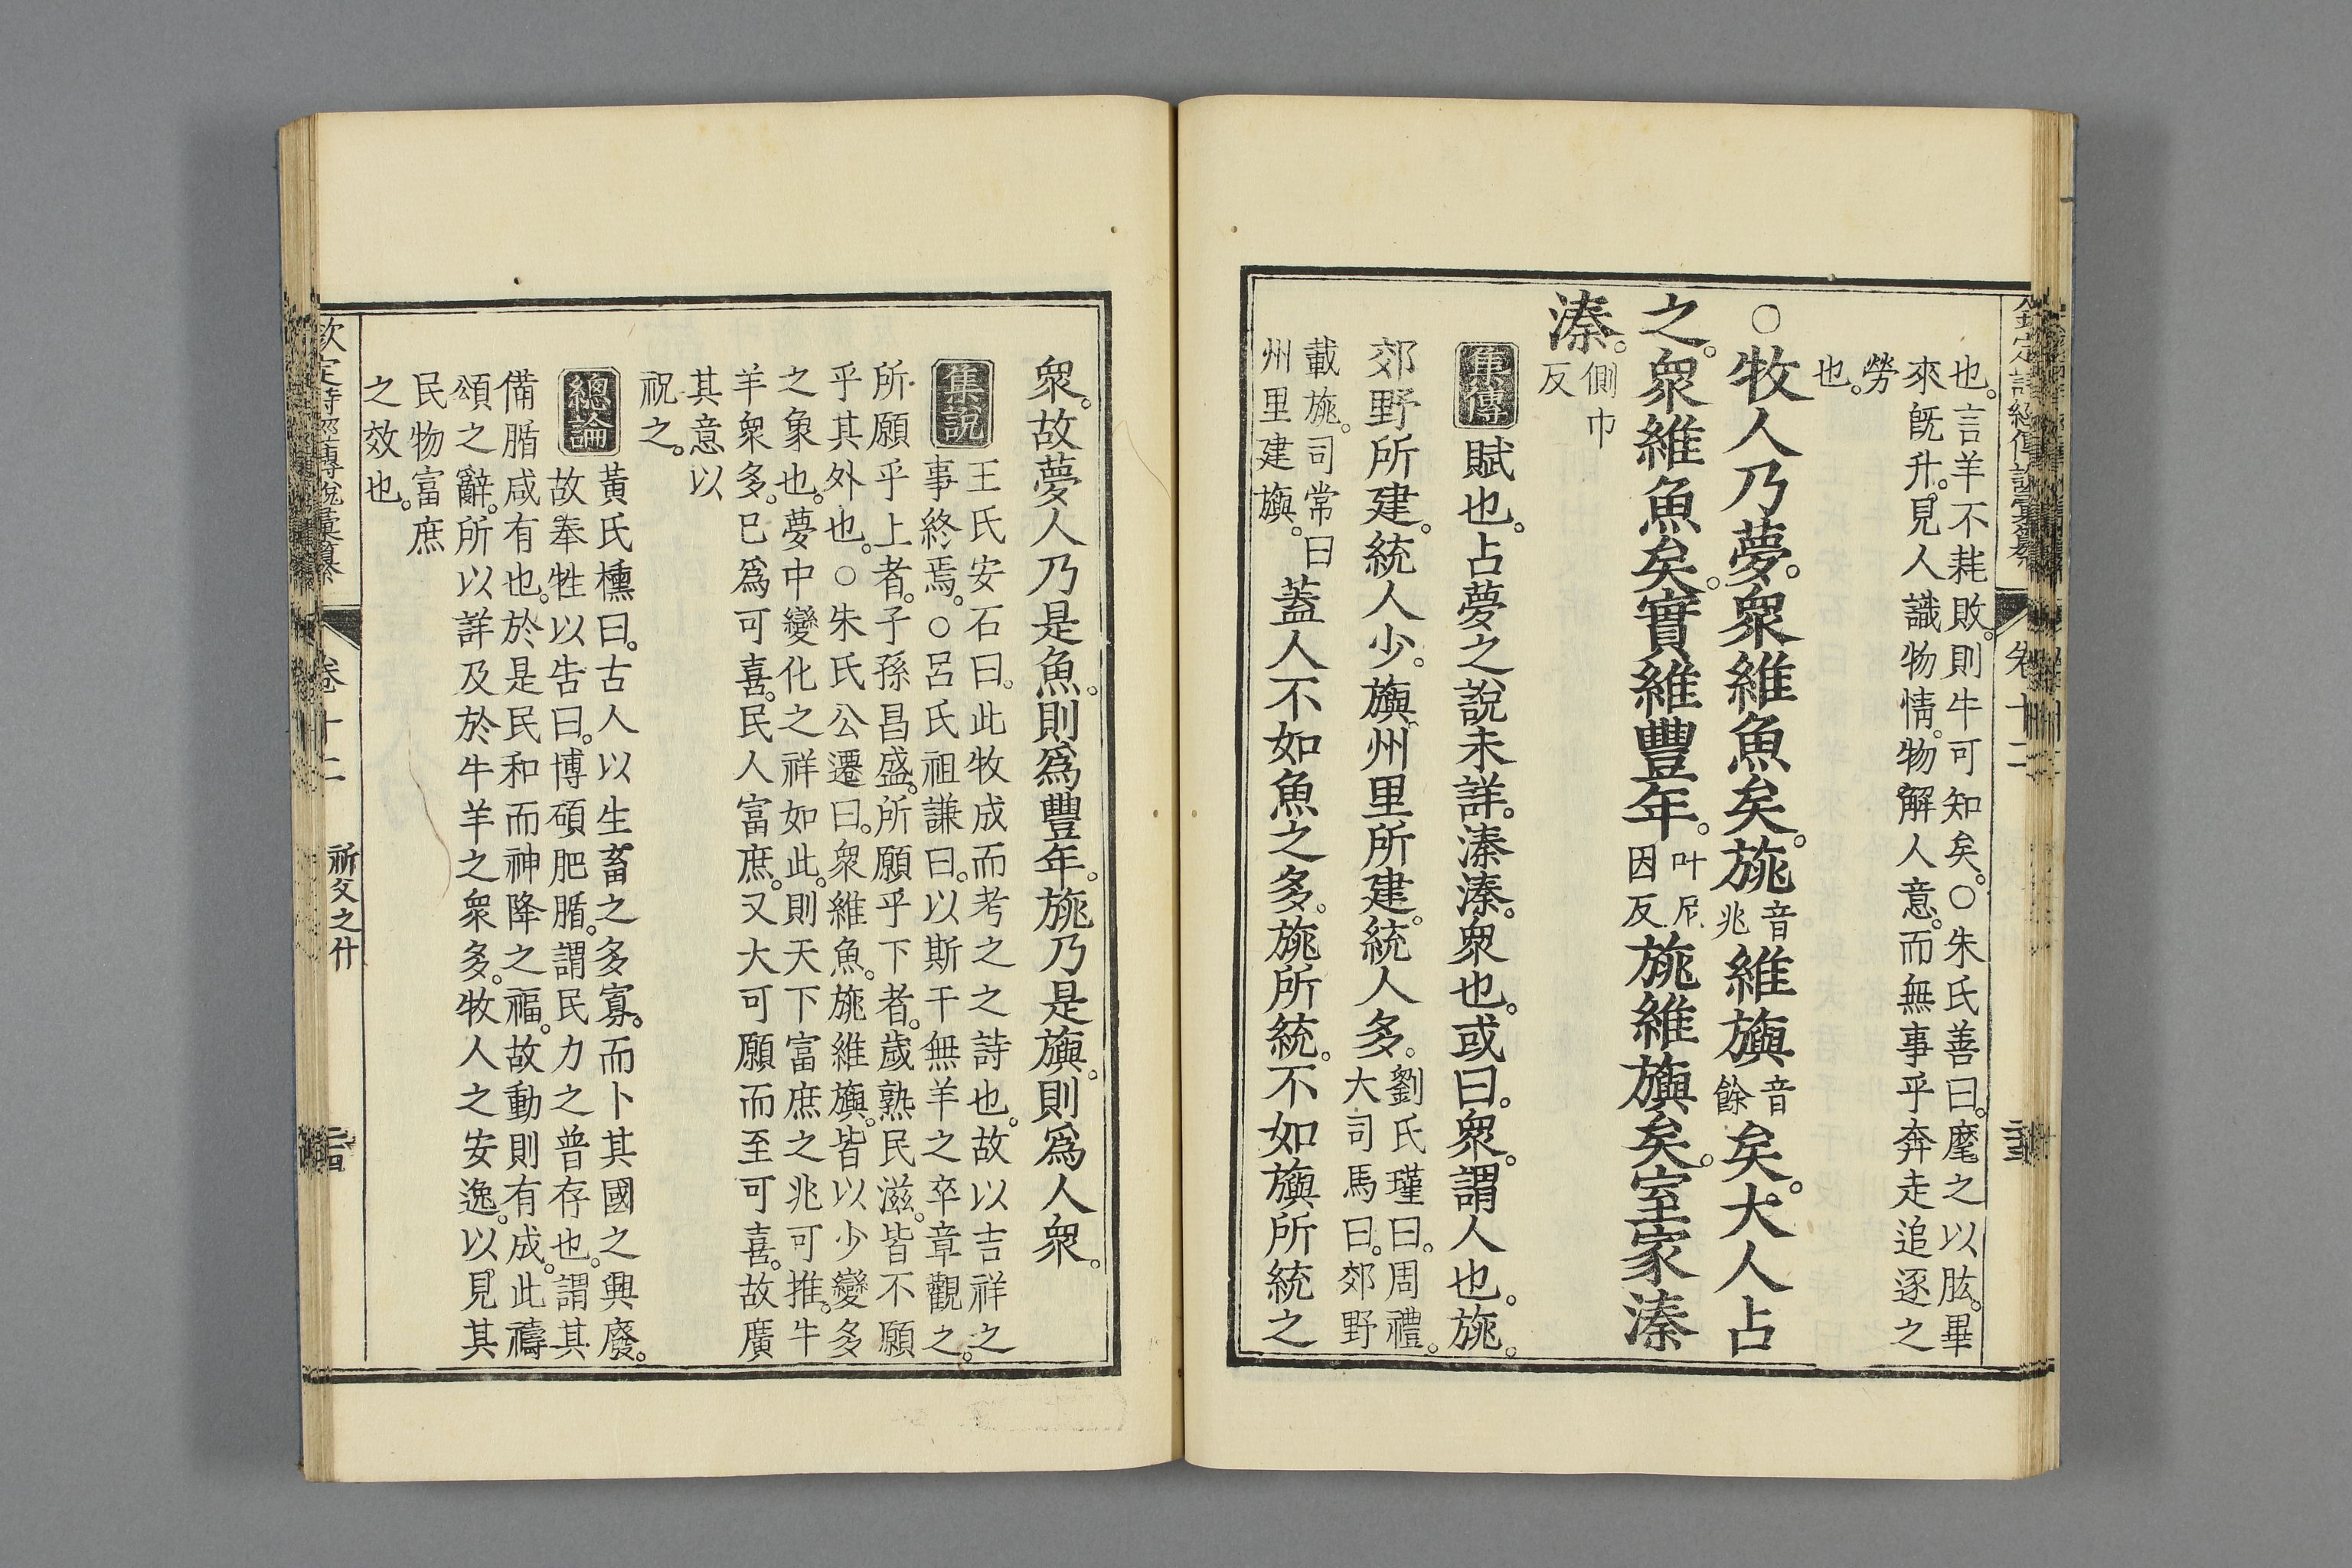 也。言羊不耗敗。則牛可知矣。○朱氏善曰。麾之以肱。畢
來既升。見人識物情。物解人意。而無事乎奔走追逐之
勞
也。
○牧人乃夢。衆維魚矣。旐音兆維旟音餘矣。大人占
之。衆維魚矣。實維豐年。叶尼因反旐維旟矣。室家溱
溱。側巾反
集傳 賦也。占夢之說未詳。溱溱。衆也。或曰。衆。謂人也。旐。
郊野所建。統人少。旟。州里所建。統人多。劉氏瑾曰。周禮。大司馬曰。郊野
載旐。司常曰州里建旟。蓋人不如魚之多。旐所統。不如旟所統之
衆。故夢人乃是魚。則爲豐年。旐乃是旟。則爲人衆。
集說 王氏安石曰。此牧成而考之之詩也。故以吉祥之
事終焉。○呂氏祖謙曰。以斯干無羊之卒章觀之。
所願乎上者。子孫昌盛。所願乎下者。歲熟民滋。皆不願
乎其外也。○朱氏公遷曰。衆維魚。旐維旟。皆以少變多
之象也。夢中變化之祥如此。則天下富庶之兆可推。牛
羊衆多。已爲可喜。民人富庶。又大可願而至可喜。故廣
其意以
祝之。
總論 黃氏櫄曰。古人以生畜之多寡。而卜其國之興廢。
故奉牲以告曰。博碩肥腯。謂民力之普存也。謂其
備腯咸有也。於是民和而神降之福。故動則有成。此禱
頌之辭。所以詳及於牛羊之衆多。牧人之安逸。以見其
民物富庶
之效也。
欽定詩經傳說彙纂 卷十二 祈父之什